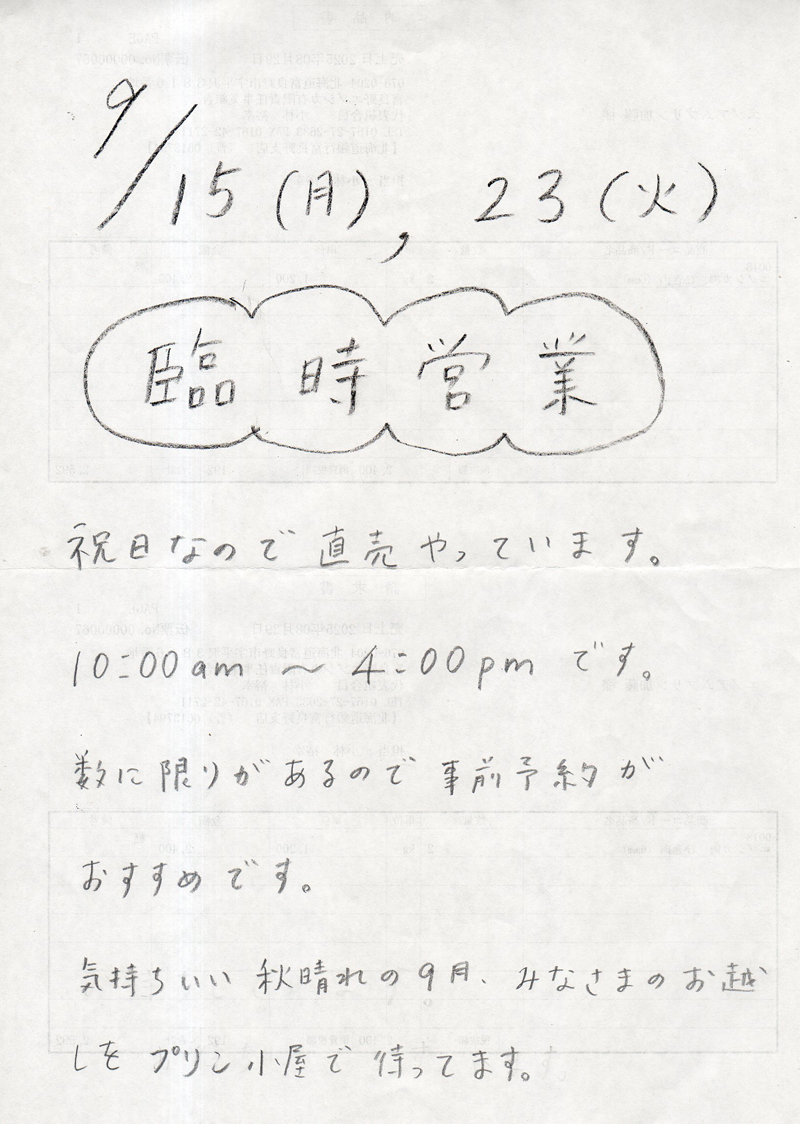 9/15(月), 23(火)
臨時営業
祝日なので直売やっています。
10:00am ～ 4:00pm です。
数に限りがあるので事前予約が
おすすめです。
気持ちいい秋晴れの9月、みなさまのお越
しをプリン小屋で待ってます。